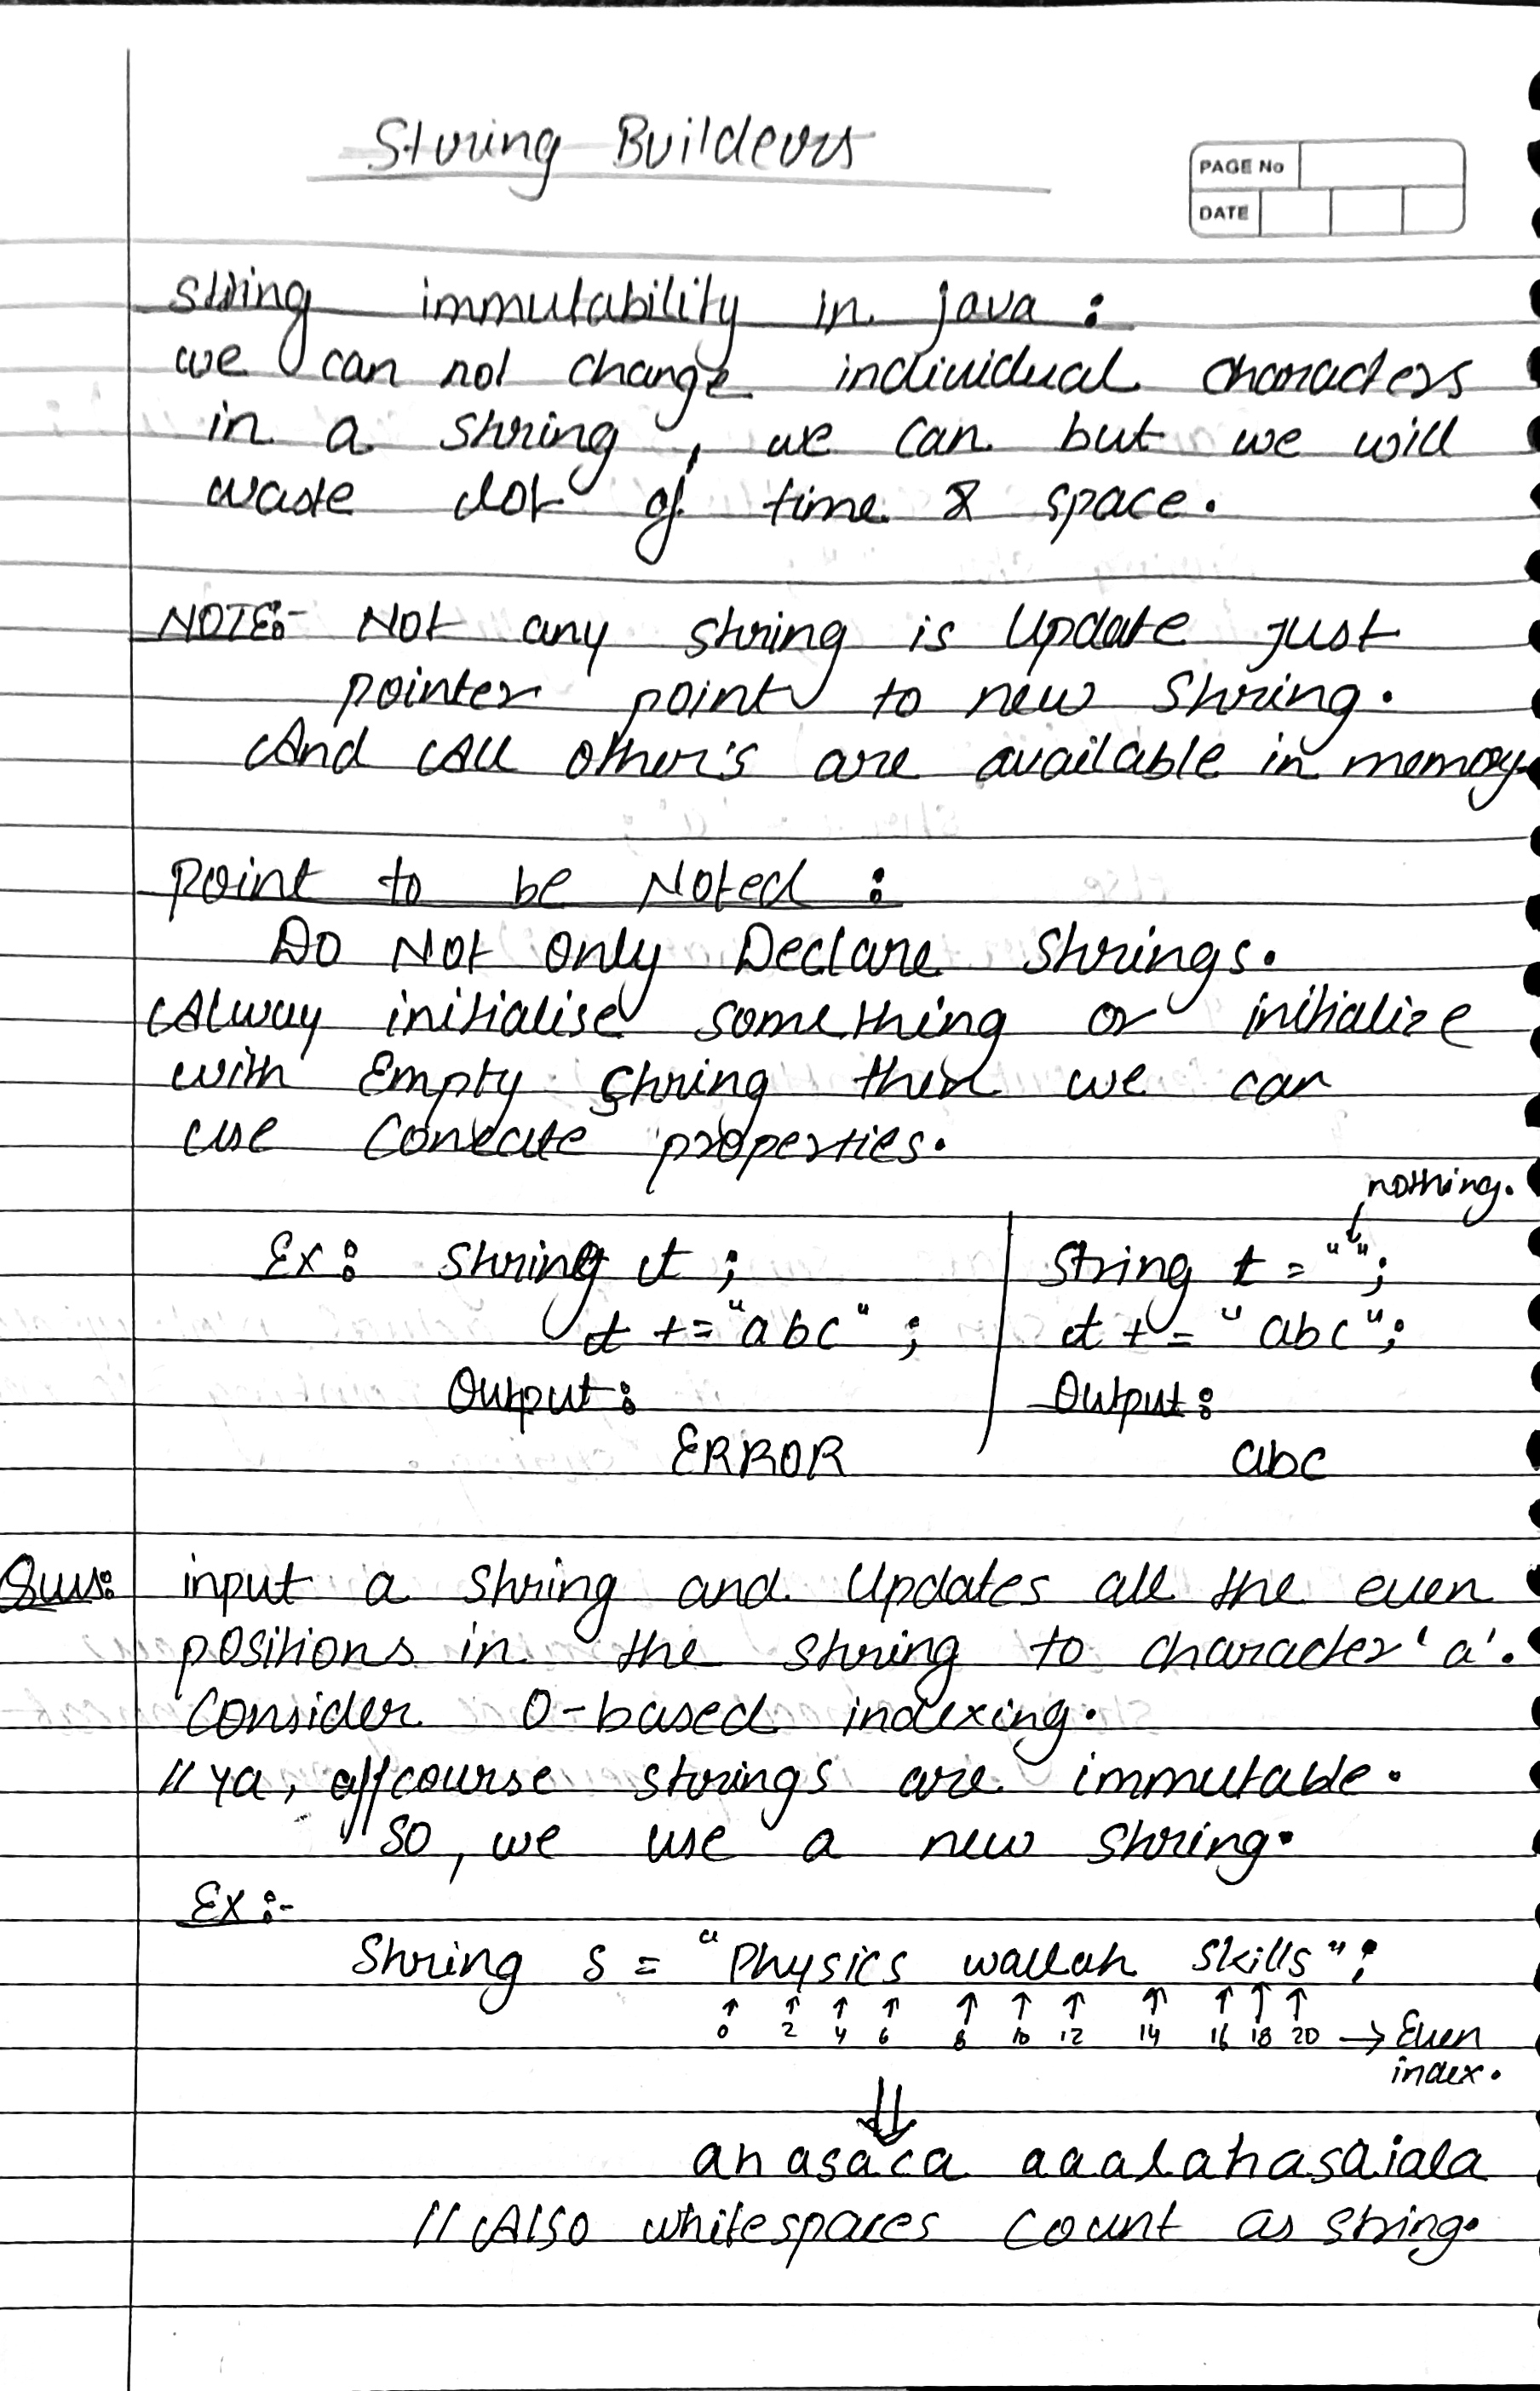 String Builders
PAGE No
DATE
string immutability in java :
we can not change individual characters
in a string , we can but we will
waste lot of time & space.
NOTE:- Not any string is Update just
pointer point to new string.
And All other's are available in memory
Point to be Noted :
Do Not only Declare strings.
Alway initialise something or initialize
with Empty string then we can
use Concate properties.
nothing.
Ex: String t ;
t += "abc" ;
Output:
ERROR
String t = "";
t += "abc";
Output:
abc
Ques: input a string and Updates all the even
positions in the string to character 'a'.
Consider 0-based indexing.
// ya, offcourse strings are immutable.
so, we use a new string.
Ex :-
String s = "Physics wallah skills";
0 2 4 6 8 10 12 14 16 18 20 → Even
index.
ahasaca aaalahasaiala
// Also whitespaces count as string.